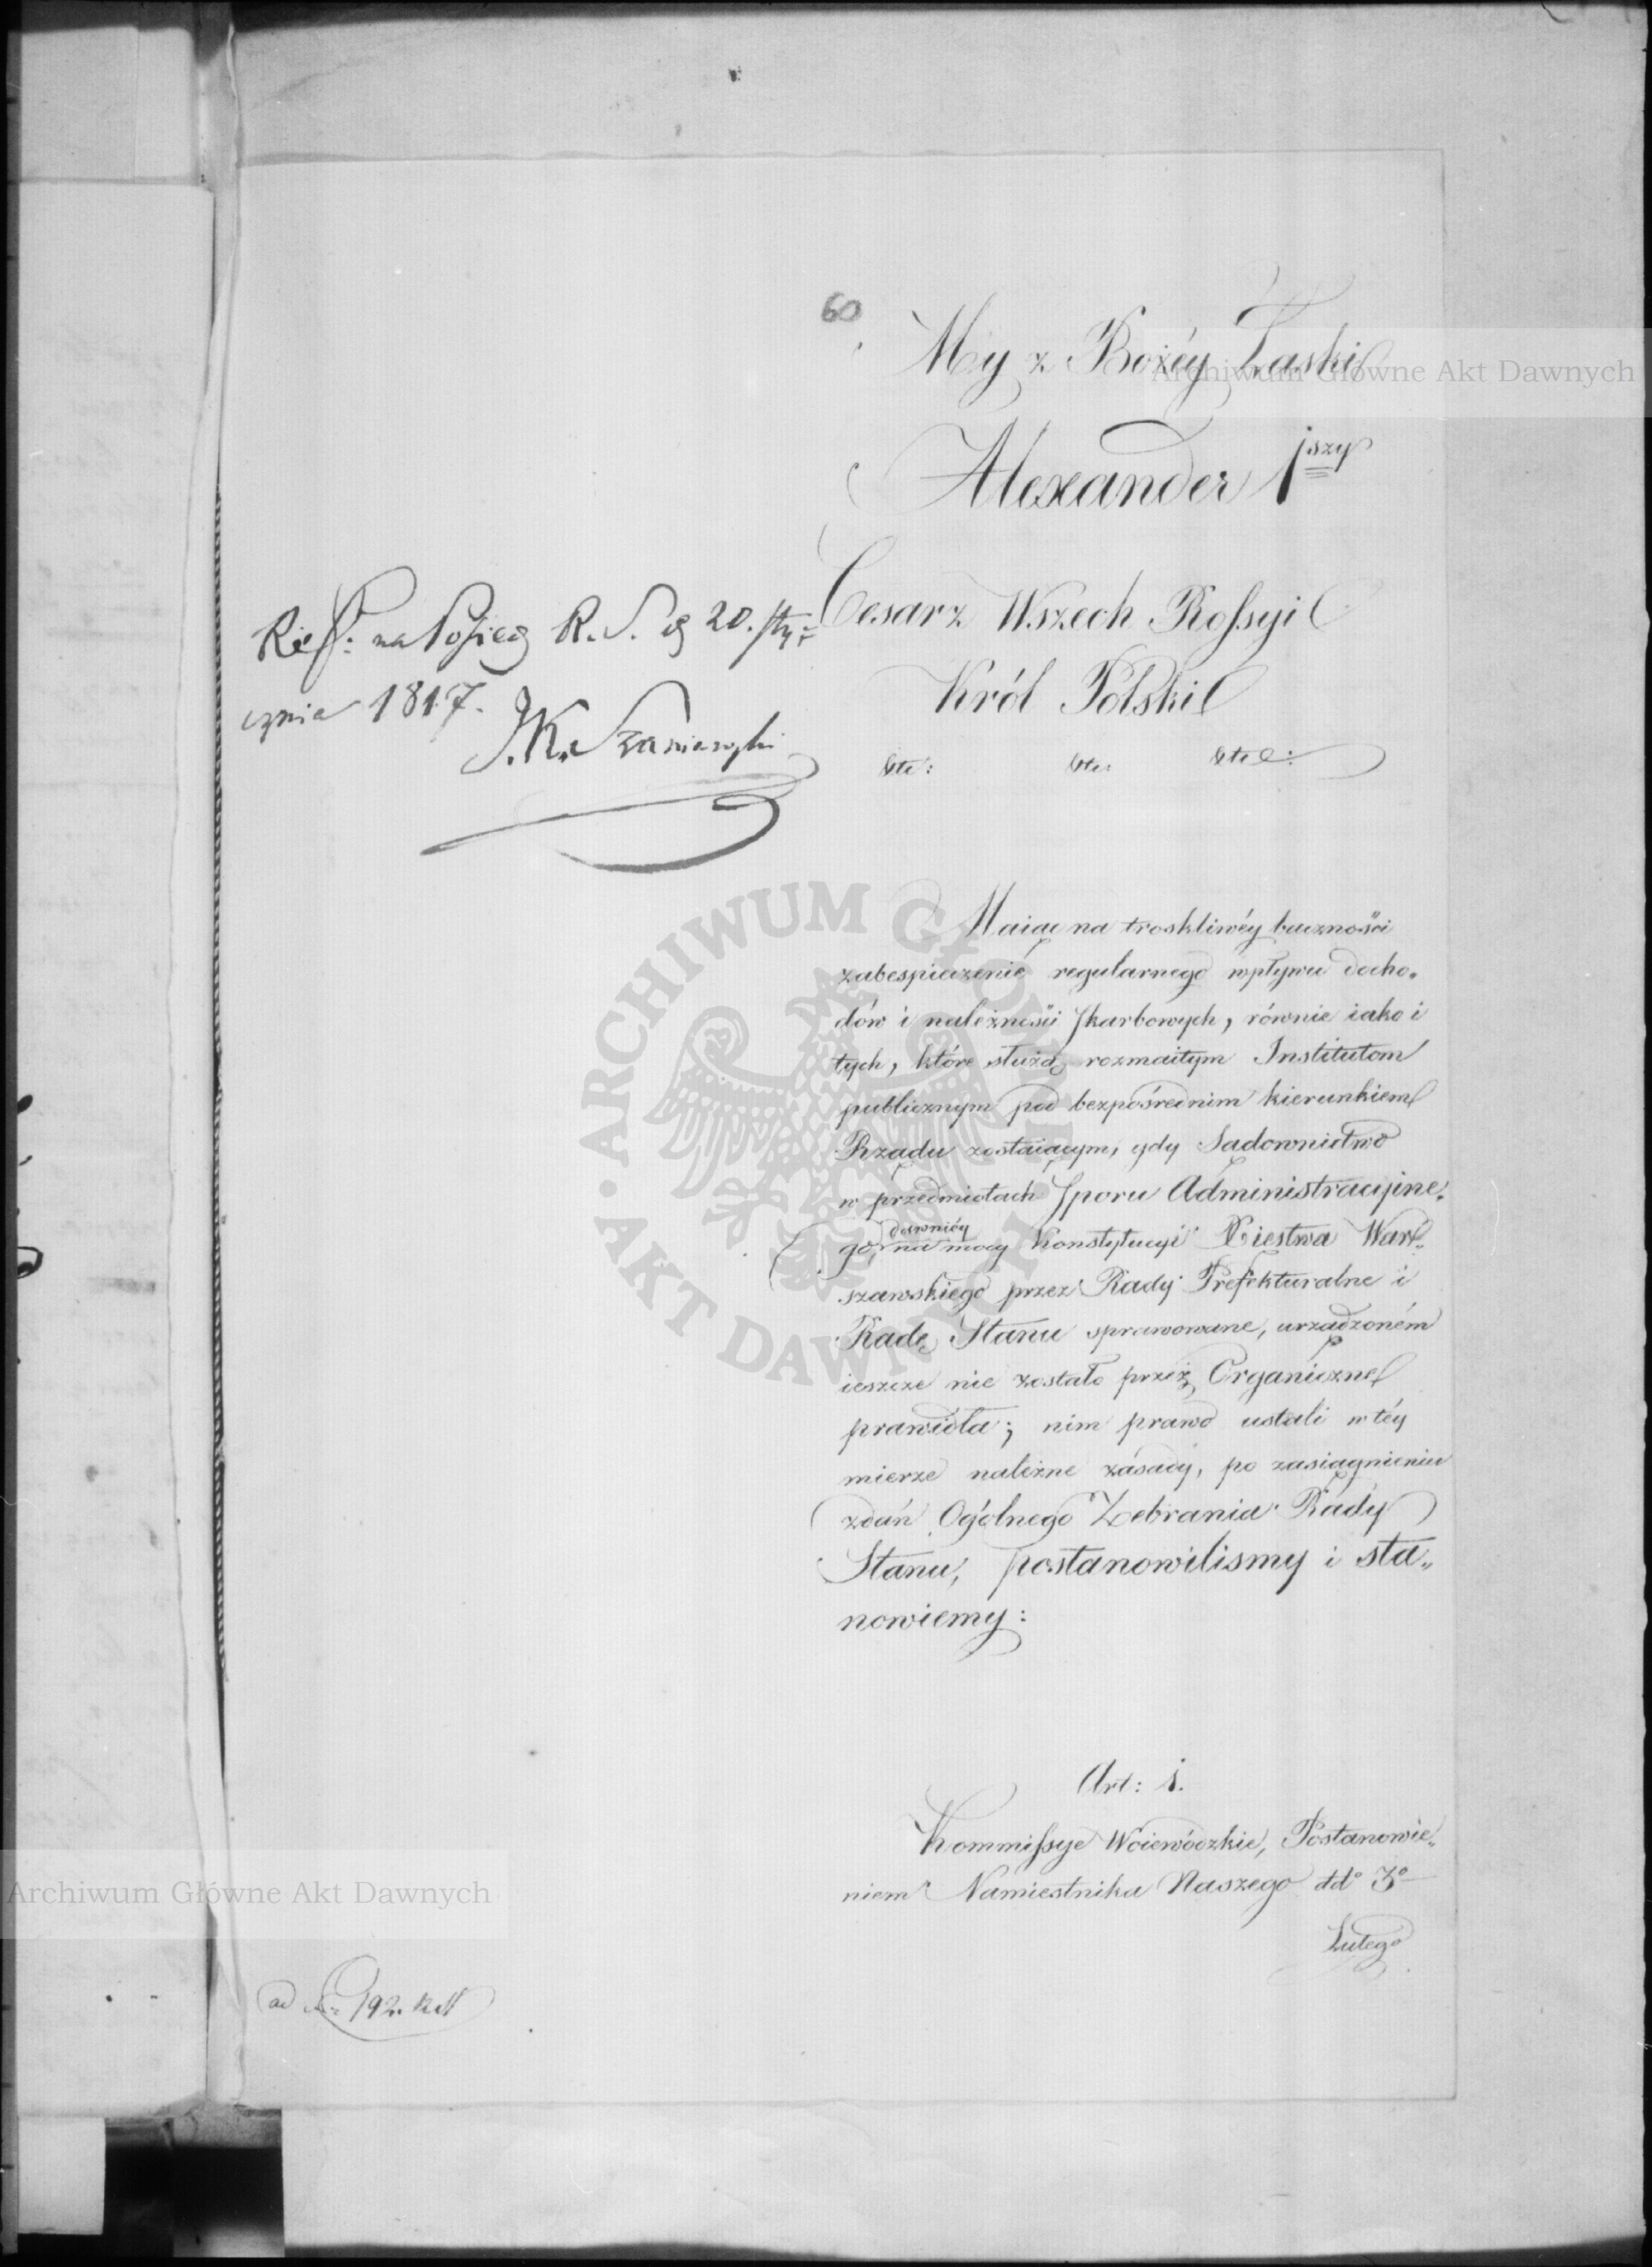 60
My z Bożéy Łaski
Alexander 1szy
Cesarz Wszech Rossyi
Król Polski
etc: etc: etc:
na Posied R. S. d 20. Sty:
cznia 1817.
J. K. Szaniawski
Maiąc na troskliwéy bacznośći
zabespieczenie regularnego wpływu docho„
dów i należnośći skarbowych, równie iako i
tych, które służą rozmaitym Institutom
publicznym pod bezpośrednim kierunkiem
Rządu zostaiącym, gdy Sądownictwo
w przedmiotach sporu Administracyjne„
go, dawniéy na mocy Konstytucyi Xięstwa War„
szawskiego przez Rady Prefekturalne i
Radę Stanu sprawowane, urządzoném
ieszcze nie zostało przez Organiczne
prawidła; nim prawo ustali w téy
mierze należne zásady, po zasiągnieniu
zdań Ogólnego Zebrania Rady
Stanu, postanowilismy i sta„
nowiemy:
Art: 1.
Kommissye Woiewódzkie, Postanowie„
niem Namiestnika Naszego dd° 3°
Lutego
ad 192.
ARCHIWUM GŁÓWNE
AKT DAWNYCH
Archiwum Główne Akt Dawnych
Archiwum Główne Akt Dawnych